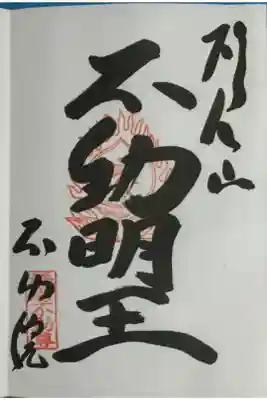 山
不動明王
不動院